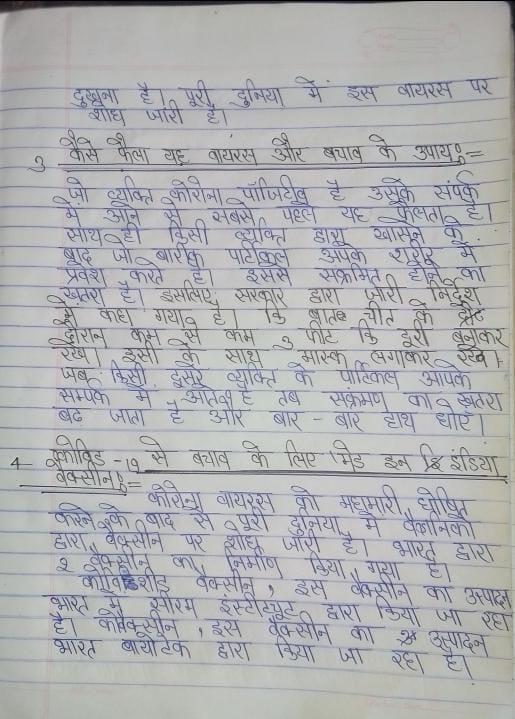 दुखना है। पूरी दुनिया में इस वायरस पर
शोध जारी है।
3 कैसे फैला यह वायरस और बचाव के उपाय:=
जो व्यक्ति कोरोना पॉजिटीव है उसके संपर्क
में आने से सबसे पहले यह फैलता है।
साथ ही किसी व्यक्ति द्वारा खांसने के
बाद जो बारीक पार्टिकल आपके शरीर में
प्रवेश करते है। इससे संक्रमित होने का
खतरा है। इसलिए सरकार द्वारा जारी निर्देश
में कहा गया है। कि बातच चीत के
दौरान कम से कम 3 फीट कि दूरी बनाकर
रखे। इसी के साथ मास्क लगाकर रखे।
जब किसी दूसरे व्यक्ति के पार्टिकल आपके
सम्पर्क में आते है तब संक्रमण का खतरा
बढ़ जाता है और बार - बार हाथ धोएं।
4 कोविड -19 से बचाव के लिए 'मेड इन इंडिया
वैक्सीन:=
कोरोना वायरस को महामारी घोषित
करने के बाद से पूरी दुनिया में वैज्ञानिको
द्वारा वैक्सीन पर शोध जारी है। भारत द्वारा
2 वैक्सीन का निर्माण किया गया है।
कोविशील्ड वैक्सीन, इस वैक्सीन का उत्पादन
भारत में सीरम इंस्टीट्यूट द्वारा किया जा रहा
है। कोवैक्सीन, इस वैक्सीन का उत्पादन
भारत बायोटेक द्वारा किया जा रहा है।